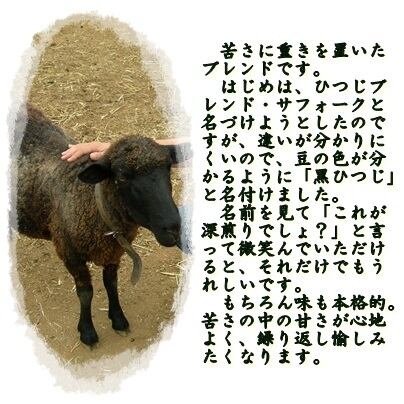 苦さに重きを置いた
ブレンドです。
はじめは、ひつじブ
レンド・サフォークと
名づけようとしたので
すが、違いが分かりに
くいので、豆の色が分
かるように「黒ひつじ」
と名付けました。
名前を見て「これが
深煎りでしょ？」と言
って微笑んでいただけ
ると、それだけでもう
れしいです。
もちろん味も本格的。
苦さの中の甘さが心地
よく、繰り返し愉しみ
たくなります。